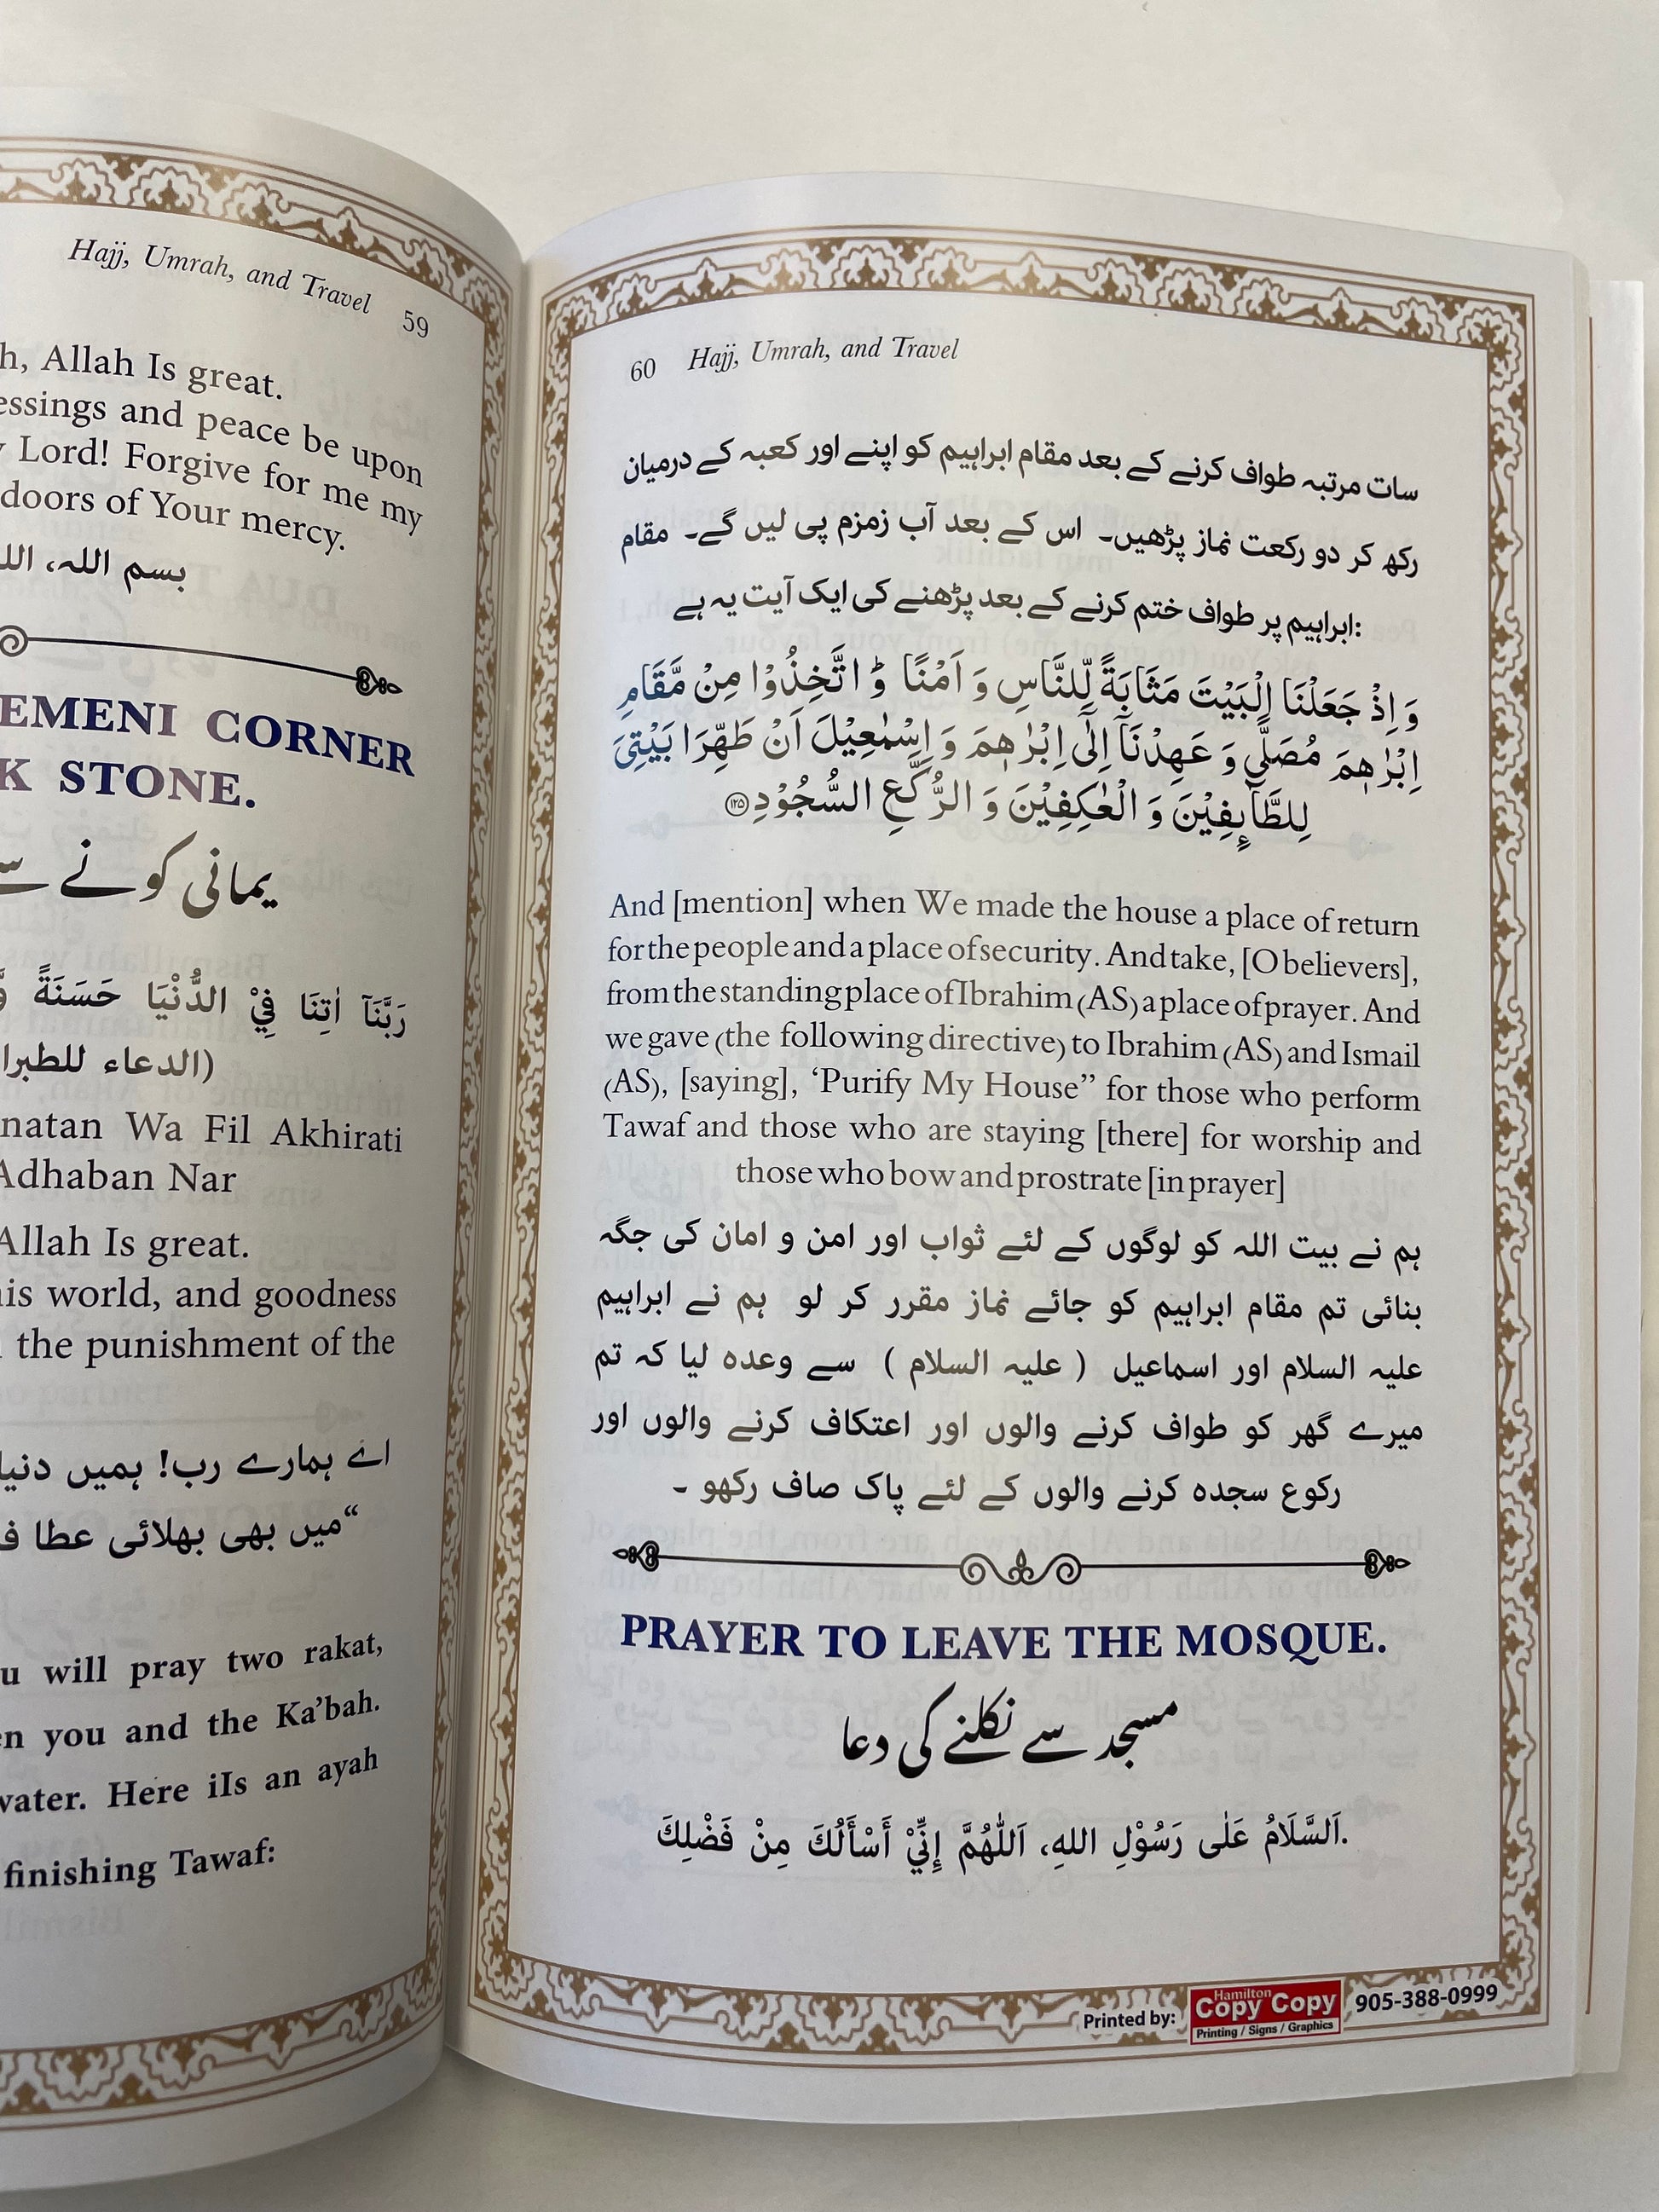 Hajj, Umrah, and Travel 59
h, Allah Is great.
essings and peace be upon
Lord! Forgive for me my
doors of Your mercy.
بسم الله، الل
EMENI CORNER
K STONE.
یمانی کونے سے
رَبَّنَآ اٰتِنَا فِيْ الدُّنْيَا حَسَنَةً وَّ
(الدعاء للطبرا
natan Wa Fil Akhirati
Adhaban Nar
Allah Is great.
is world, and goodness
the punishment of the
اے ہمارے رب! ہمیں دنیا
میں بھی بھلائی عطا ف“
u will pray two rakat,
en you and the Ka’bah.
vater. Here iIs an ayah
finishing Tawaf:
60 Hajj, Umrah, and Travel
سات مرتبہ طواف کرنے کے بعد مقام ابراہیم کو اپنے اور کعبہ کے درمیان
رکھ کر دو رکعت نماز پڑھیں۔ اس کے بعد آب زمزم پی لیں گے۔ مقام
ابراہیم پر طواف ختم کرنے کے بعد پڑھنے کی ایک آیت یہ ہے:
وَ اِذْ جَعَلْنَا الْبَيْتَ مَثَابَةً لِّلنَّاسِ وَ اَمْنًا ؕ وَ اتَّخِذُوْا مِنْ مَّقَامِ
اِبْرٰهٖمَ مُصَلًّى ؕ وَ عَهِدْنَاۤ اِلٰۤى اِبْرٰهٖمَ وَ اِسْمٰعِيْلَ اَنْ طَهِّرَا بَيْتِيَ
لِلطَّآىِٕفِيْنَ وَ الْعٰكِفِيْنَ وَ الرُّكَّعِ السُّجُوْدِ ۱۲۵
And [mention] when We made the house a place of return
for the people and a place of security. And take, [O believers],
from the standing place of Ibrahim (AS) a place of prayer. And
we gave (the following directive) to Ibrahim (AS) and Ismail
(AS), [saying], ‘Purify My House” for those who perform
Tawaf and those who are staying [there] for worship and
those who bow and prostrate [in prayer]
ہم نے بیت اللہ کو لوگوں کے لئے ثواب اور امن و امان کی جگہ
بنائی تم مقام ابراہیم کو جائے نماز مقرر کر لو ہم نے ابراہیم
علیہ السلام اور اسماعیل ( علیہ السلام ) سے وعدہ لیا کہ تم
میرے گھر کو طواف کرنے والوں اور اعتکاف کرنے والوں اور
رکوع سجدہ کرنے والوں کے لئے پاک صاف رکھو ۔
PRAYER TO LEAVE THE MOSQUE.
مسجد سے نکلنے کی دعا
اَلسَّلَامُ عَلٰى رَسُوْلِ اللهِ، اَللّٰهُمَّ إِنِّيْ أَسْأَلُكَ مِنْ فَضْلِكَ.
Printed by: Hamilton Copy Copy 905-388-0999
Printing / Signs / Graphics